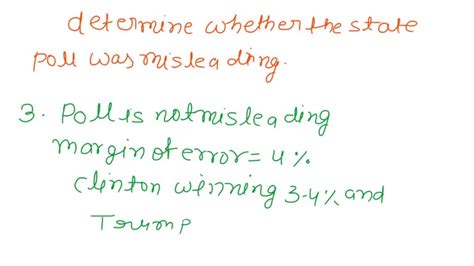 determine whether the state
poll was misleading.
3. Poll is not misleading
margin of error = 4%
Clinton winning 3-4% and
Trump